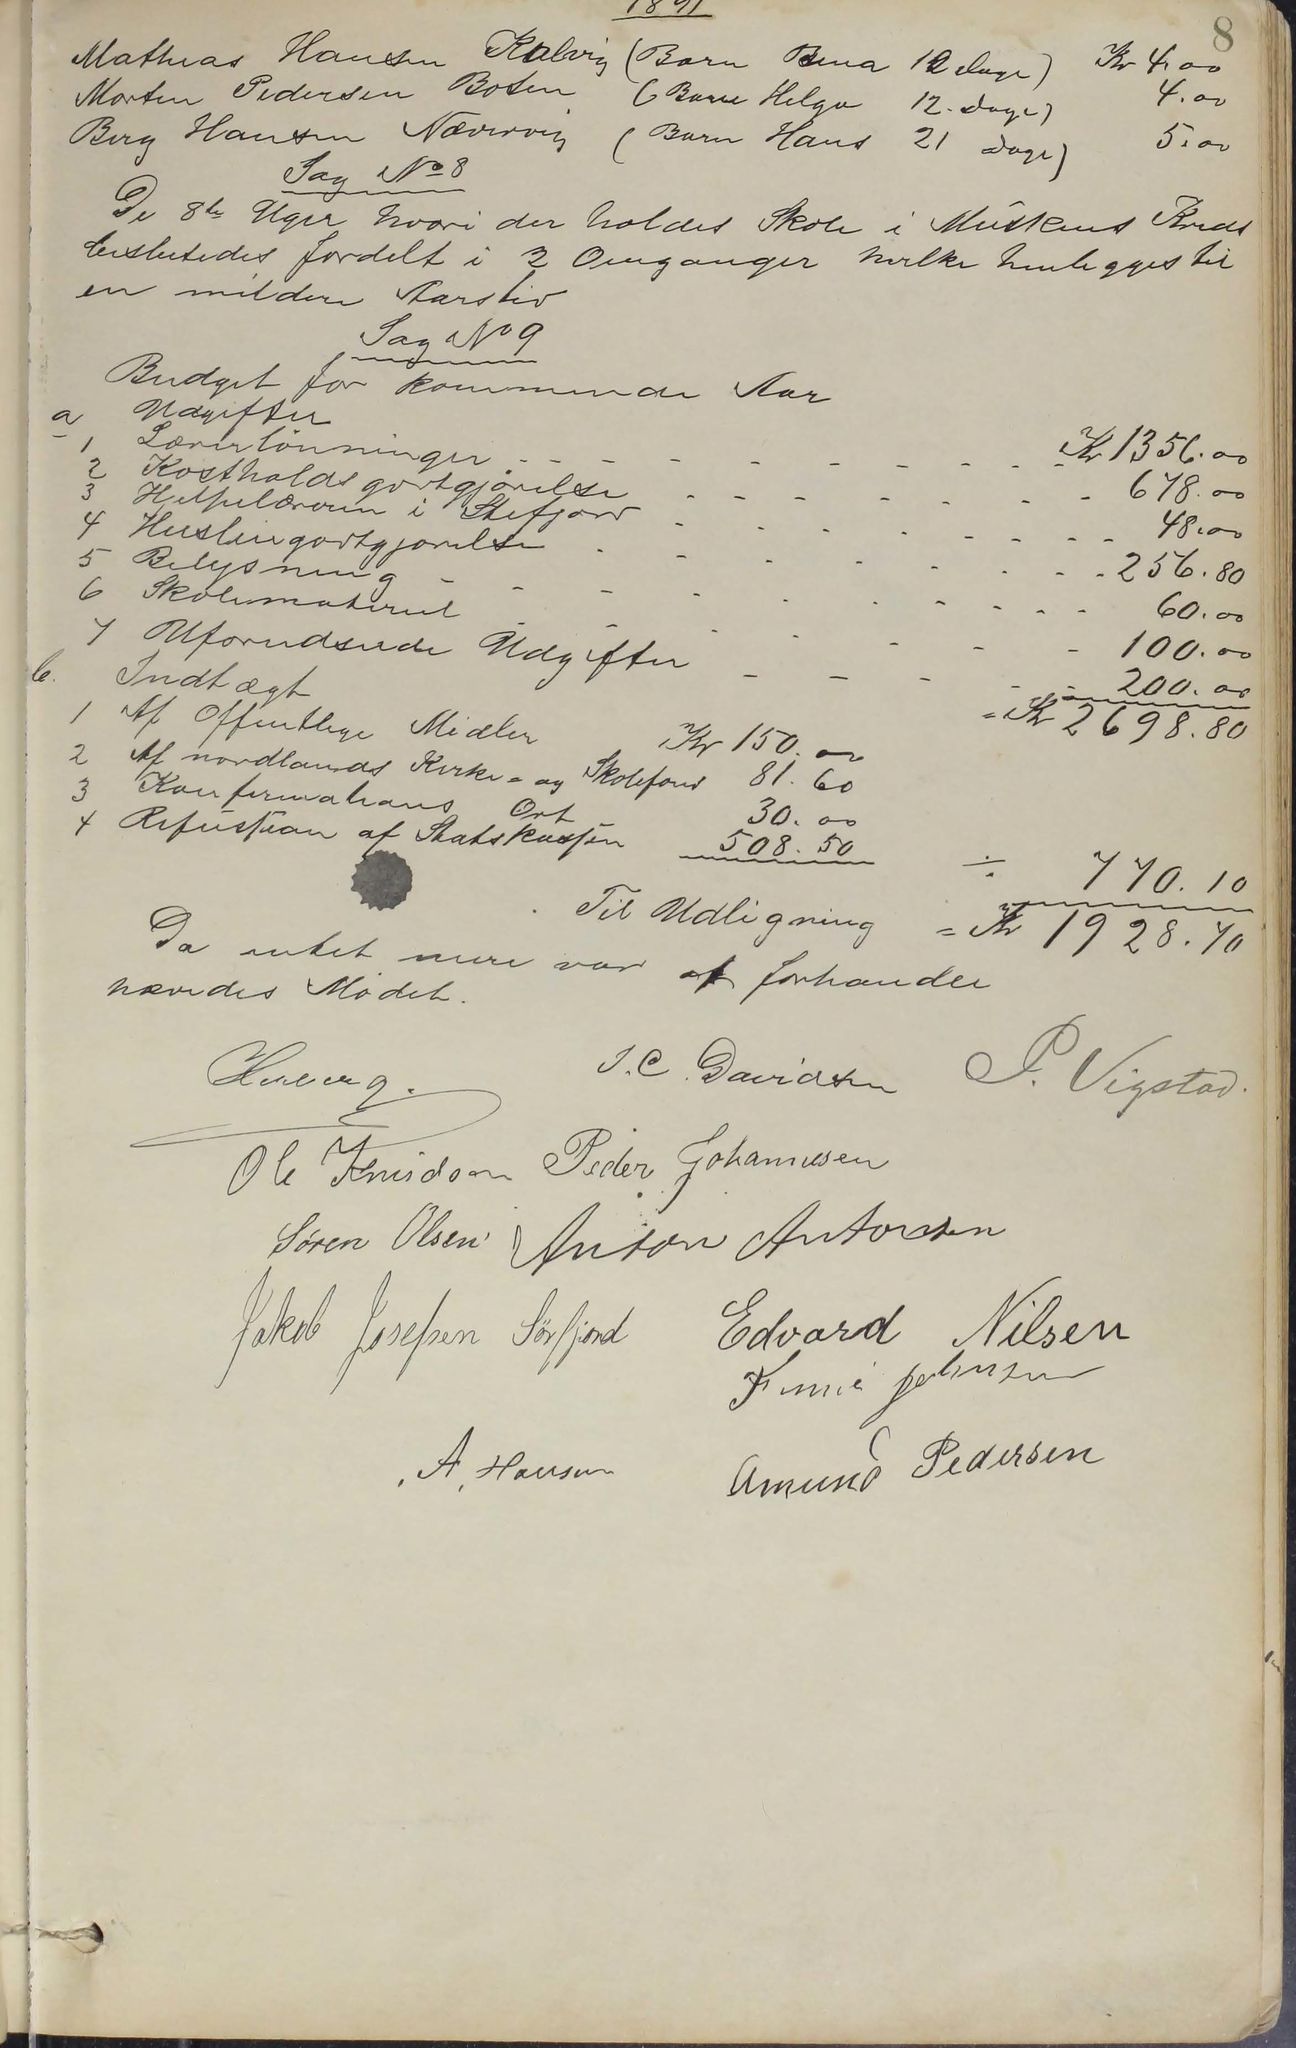 1891
8
Mathias Hansen Kalvig (Barn Bena 12 Dage) Kr 4.00
Morten Pedersen Boten (Barn Helga 12. Dage) 4.00
Berg Hansen Nævervig (Barn Hans 21 Dage) 5.00
Sag No 8
De 8te Uger hvori der holdes Skole i Muskens Kreds
besluttedes fordelt i 2 Omganger hvilke henlegges til
en mildere Aarstid
Sag No 9
Budget for kommende Aar
a Udgifter
1 Lærerlønninger Kr 1356.00
2 Kostholdsgodtgjørelse 678.00
3 Hjelpelæreren i Stefjord 48.00
4 Husleiegodtgjørelse 256.80
5 Belysning 60.00
6 Skolemateriel 100.00
7 Uforudseede Udgifter 200.00
= Kr 2698.80
b. Indtægt
1 Af Offentlige Midler Kr 150.00
2 Af nordlands Kirke- og Skolefond 81.60
3 Konfirmations Ort 30.00
4 Refusion af Statskassen 508.50 ÷ 770.10
Til Udligning = Kr 1928.70
Da intet mere var at forhandle
hævedes Mødet.
J.C. Davidsen P. Vigstad.
Ole Knudsen Peder Johannesen
Søren Olsen Anton Antonsen
Jakob Josefsen Sørfjord Edvard Nilsen
Johnsen
A. Hansen Amund Pedersen